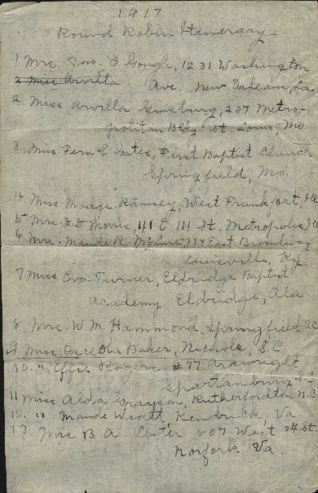 1917
Round Robin Itenerary
1 Mrs. Jno. O Gough, 1231 Washington
2 Miss Arvilla Ave. New Orleans, La
2. Miss Arvilla Ginsburg, 207 Metro-
politan Bldg. St. Louis, Mo.
3. Miss Fern E Gates, First Baptist Church
Springfield, Mo.
4. Miss Margie Ramsey, West Frankfort, Ill
5 Mrs. Morris 111 E 11 St. Metropolis, Ill
6 Mrs. Maude R. McLure, 334 East Broadway
Louisville, Ky.
7 Miss Eva Turner, Eldridge Baptist
Academy Eldridge, Ala.
8. Mrs. W. M. Hammond Springfield S.C.
9 Miss Ola Baker, Nichols, S.C.
10. " Effie Rogers #77 Arkwright
Spartanburg S.C.
11 Miss Alda Grayson, Rutherfordton N.C.
12. " Maude Wyatt, Kendrick, Va
13. Mrs B. A. 607 West 34 St.
Norfork Va